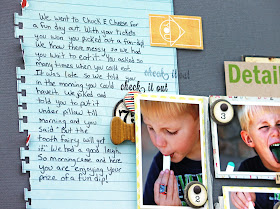 We went to Chuck E Cheese for
a fun day out. With your tickets
you won you picked out a fun dip.
We know there messy so we had
you wait to eat it. You asked so
many times when you could eat.
It was late. So we told you
in the morning you could
have it. We joked and
told you to put it
under pillow till
morning and you
said "But the
tooth fairy will get
it". We had a good laugh.
So morning came and here
you are enjoying your
prize of a fun dip!
check it out
check it out
Detail
3
2